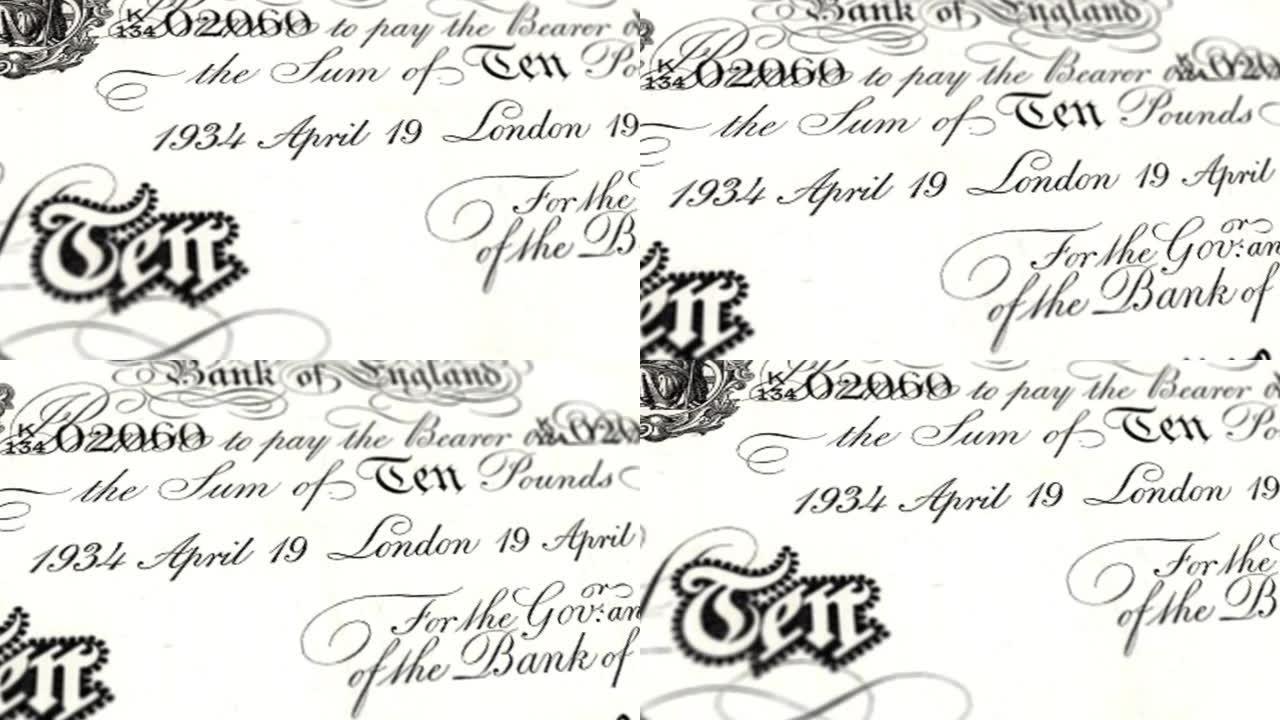 K
134 02060 to pay the Bearer
the Sum of Ten
1934 April 19 London 19
For the
of the B
Ten
Bank of England
K
134 02060 to pay the Bearer
the Sum of Ten Pounds
1934 April 19 London 19 April
For the Govor: an
of the Bank of
Ten
Bank of England
K
134 02060 to pay the Bearer
the Sum of Ten Pounds
1934 April 19 London 19 April
For the Govor: an
of the Bank of
Ten
K
134 02060 to pay the Bearer
the Sum of Ten
1934 April 19 London 19
For the
of the B
Ten